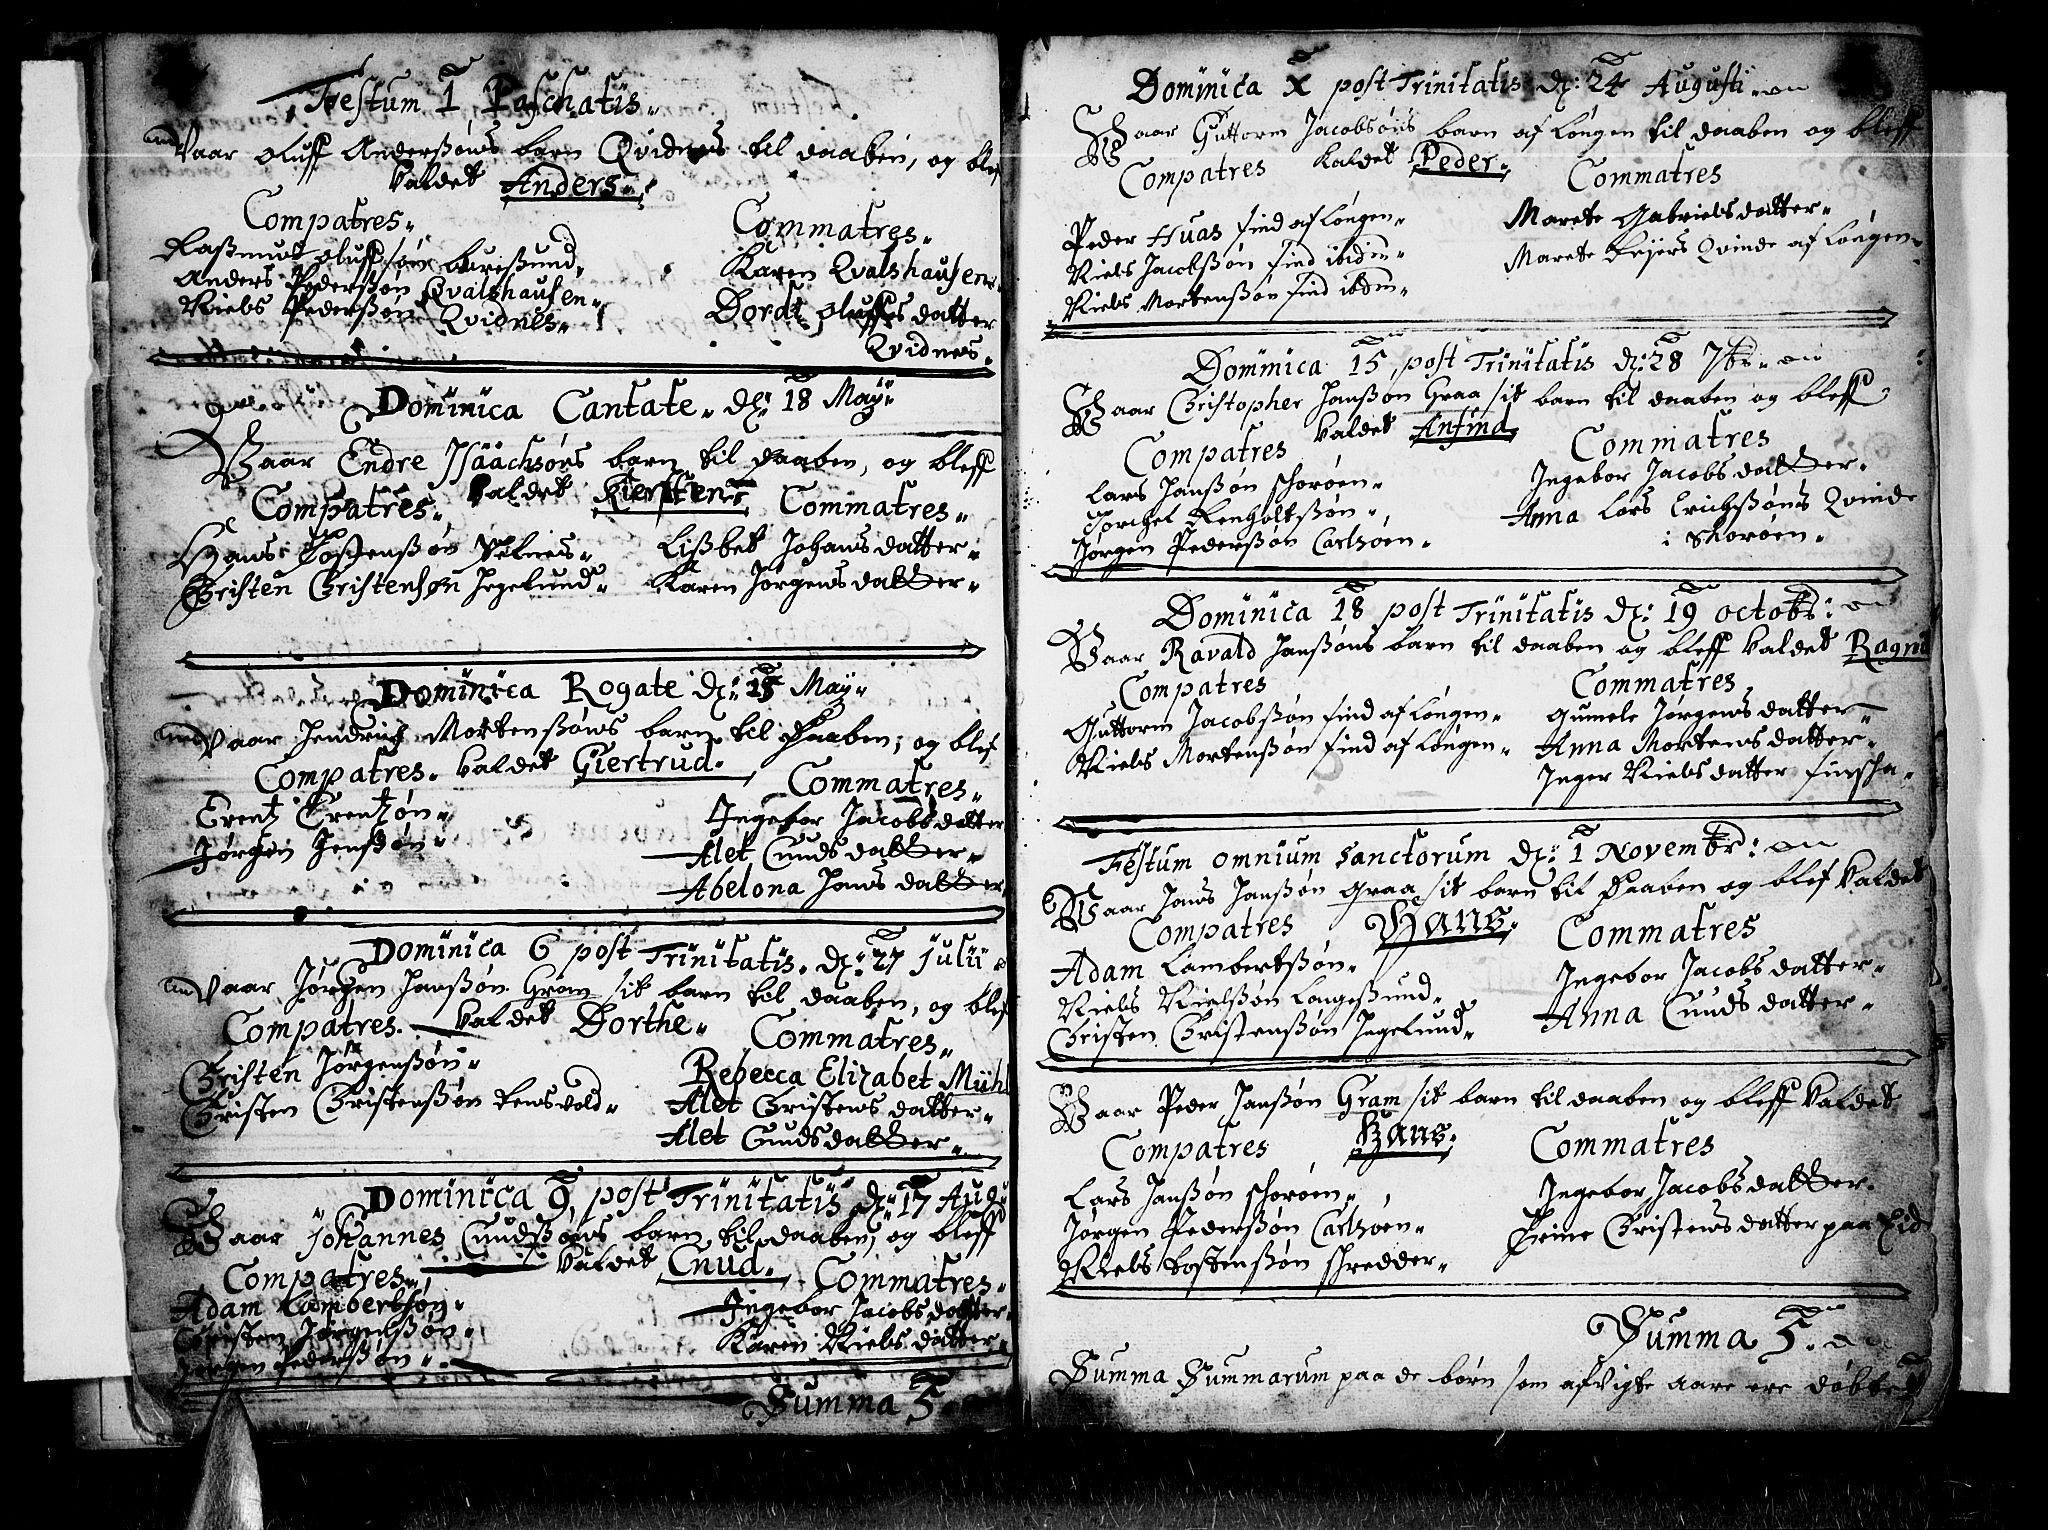 Festum 1 Paschatis.
Vaar Oluff Anderssøns barn Qvidnes til daaben, og blef
kaldet Anders.
Compatres. Commatres.
Rassmus Oluffsøn buressund,
Anders Pederssøn Qvalshausen.
Niels Pederssøn Qvidnes.
Karen Qvalshausen.
Dordt Oluffs datter
Qvidnes.
Dominica Cantate. d: 18 May
Vaar Endre Isäachsøns barn til daaben, og bleff
kaldet Kiersten
Compatres. Commatres.
Hans Tostenssøn Selnes.
Christen Christensøn Jegelund.
Lissbet Johans datter.
Karen Jørgens datter.
Dominica Rogate d: 25 May.
Vaar Hendrich Mortenssøns barn til daaben, og blef
Compatres. kaldet Giertrud. Commatres.
Erentz Erentzøn.
Jørgen Jenssøn.
Ingebor Jacobs datter
Alet Cnuds datter.
Abelona Hans datter
Dominica 6 post Trinitatis. d: 27 Julii
Vaar Jørgen Hanssøn Gram sit barn til daaben, og blef
Compatres. kaldet Dorthe. Commatres.
Christen Jørgenssøn.
Christen Christenssøn Rensvold.
Rebecca Elizabet Mühl
Alet Christens datter.
Alet Cnuds datter.
Dominica 9, post Trinitatis d: 17 Aug
Vaar Johannes Cnudssøns barn til daaben, og bleff
kaldet Cnud.
Compatres. Commatres.
Adam Lambertsøn.
Christen Jørgenssøn.
Jørgen Pederssøn.
Ingebor Jacobs datter.
Karen Niels datter.
Summa 5.
Dominica X post Trinitatis d: 24 Augusti.
Vaar Guttorm Jacobsøns barn af Longen til daaben og bleff
Compatres kaldet Peder. Commatres
Peder Huas find af Longen.
Niels Jacobssøn find ibidm.
Niels Mortenssøn find ibdm.
Marete Gabriels datter.
Marete Rejers Qvinde af Longen.
Dominica 15, post Trinitatis d: 28 7br.
Vaar Christopher Hanssøn Graa sit barn til daaben og bleff
Compatres kaldet Anfind. Commatres
Lars Hanssøn schorøen.
Torchel Renholtssøn.
Jørgen Pederssøn Carlsøen.
Ingebor Jacobs datter.
Anna Lars Erichssøns Qvinde
i Skorøen.
Dominica 18 post Trinitatis d: 19 octobr:
Vaar Ravald Hanssøns barn til daaben og bleff kaldet Ragnil
Compatres Commatres
Guttorm Jacobssøn find af Longen.
Niels Mortenssøn find af Longen.
Gumele Jørgens datter.
Anna Mortens datter.
Inger Niels datter
Festum omnium sanctorum d: 1 Novembr:
Vaar Hans Hanssøn Graa sit barn til daaben og blef kaldet
Compatres Hans. Commatres
Adam Lambertssøn.
Niels Nielssøn Langessund.
Christen Christenssøn Jegelund.
Ingebor Jacobs datter.
Anna Cnuds datter.
Vaar Peder Hanssøn Gram sit barn til daaben og bleff kaldet
Compatres Hans. Commatres
Lars Hanssøn schorøen.
Jørgen Pederssøn Carlsøen.
Niels Tostenssøn schredder.
Ingebor Jacobs datter.
Christens datter paa Eid
Summa 5.
Summa Summarum paa de børn som afvigte aare ere døbte